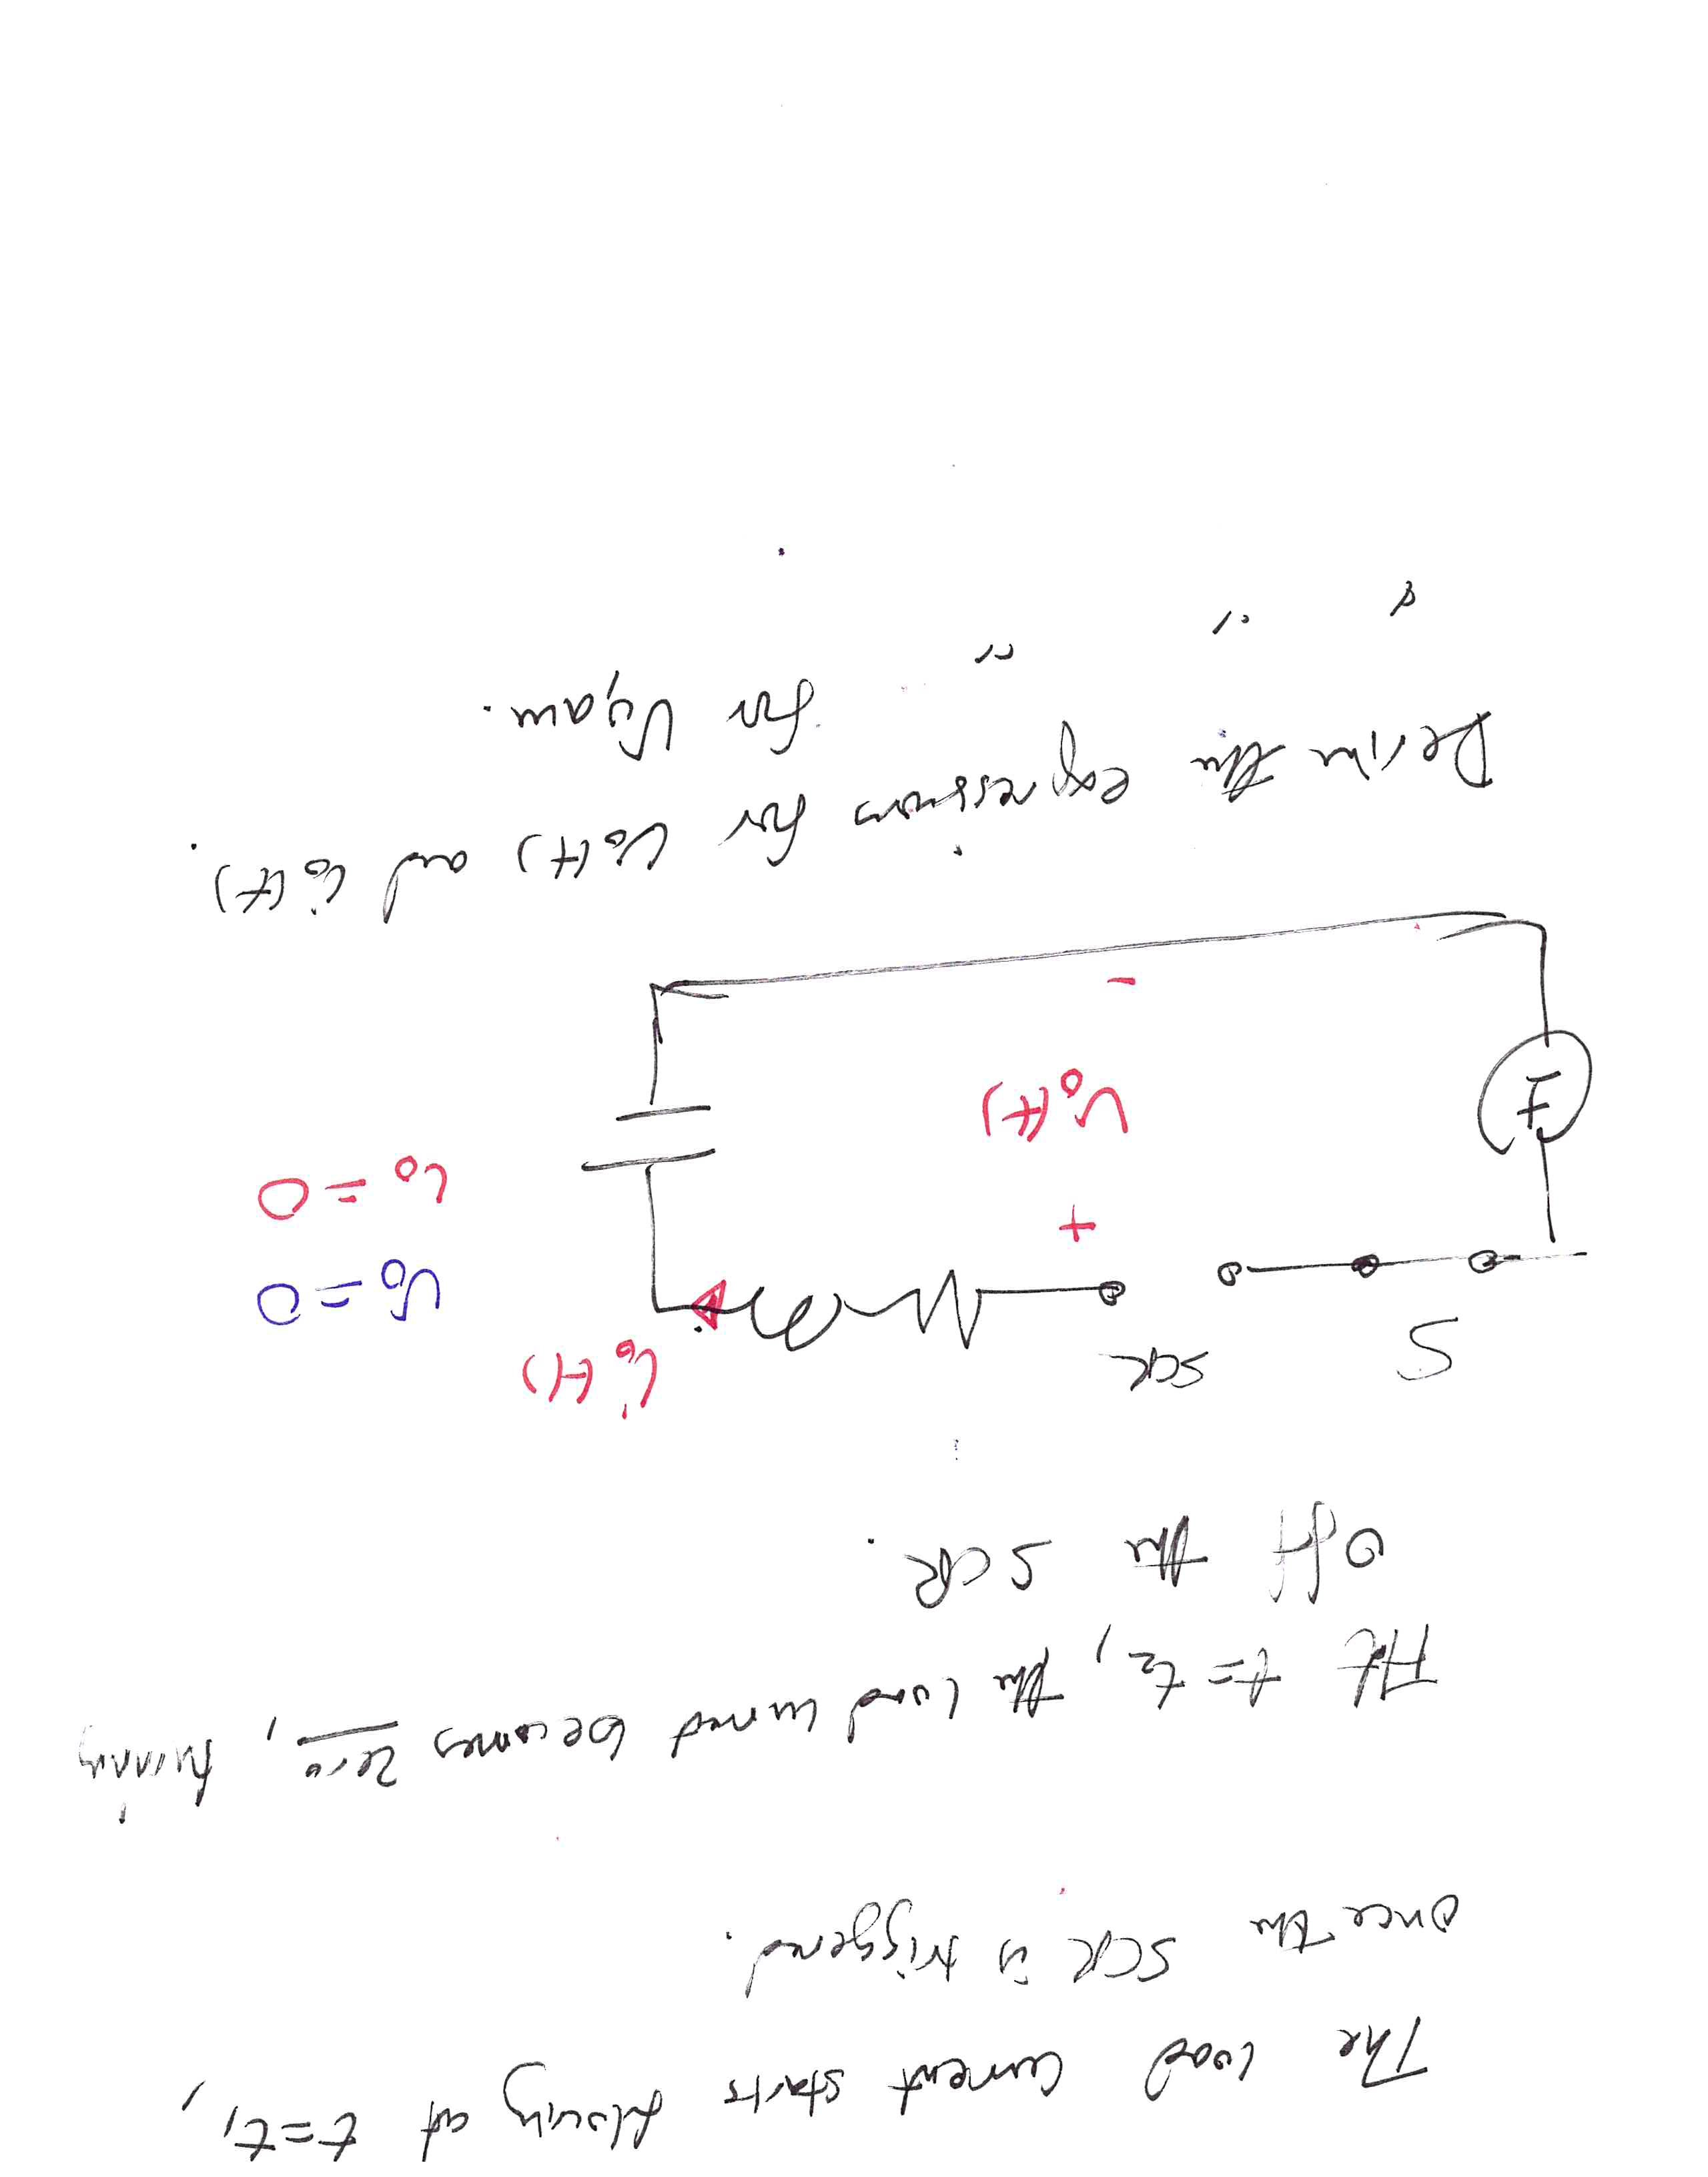 The load current starts flowing at t=t1,
once the SCR is triggered.
At t=t2, the load current becomes zero, turning
off the SCR.
S SCR i0(t)
V0=0
+ i0=0
V0(t)
-
Derive the expressions for V0(t) and i0(t).
" " " for Vgain.